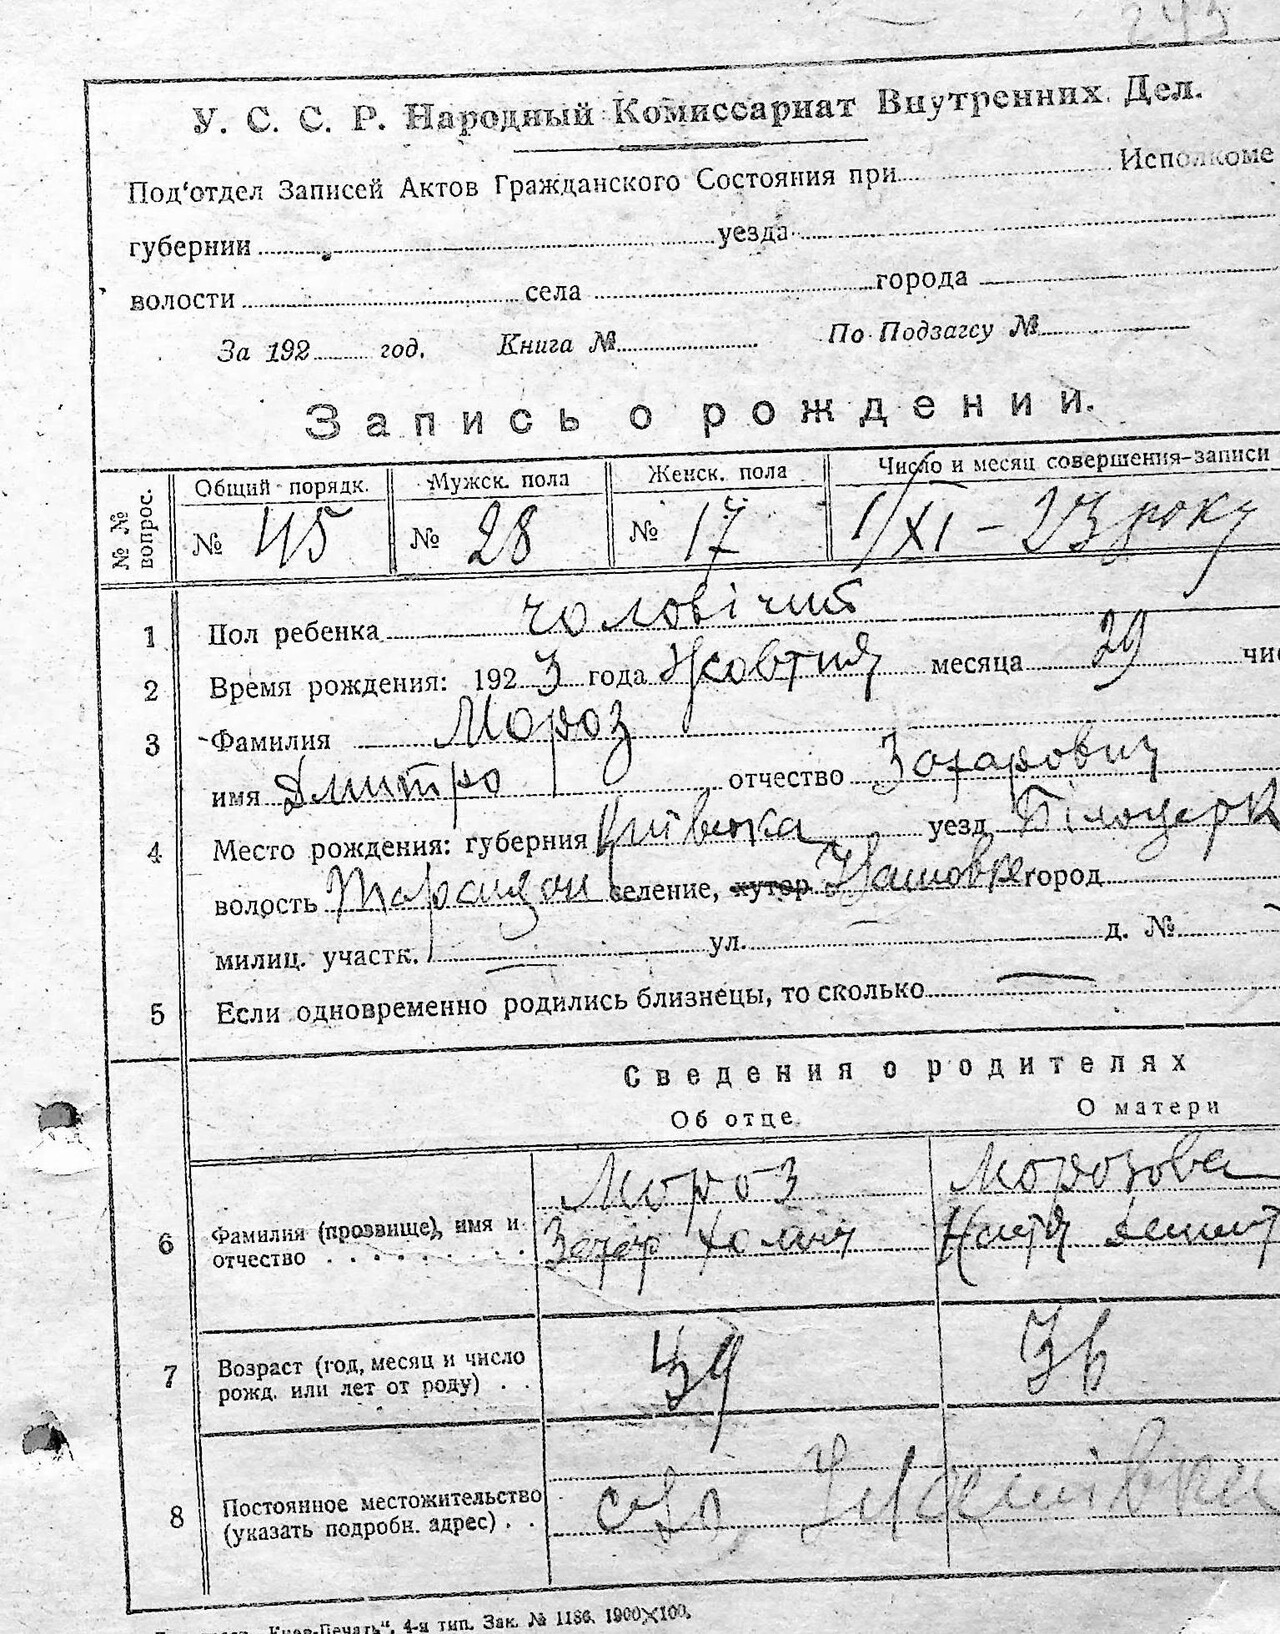 243
У. С. С. Р. Народный Комиссариат Внутренних Дел.
Под‘отдел Записей Актов Гражданского Состояния при Исполкоме
губернии уезда
волости села города
За 192 год. Книга № По Подзагсу №
Запись о рождении.
№ № вопрос.
Общий порядк. Мужск. пола Женск. пола Число и месяц совершения записи
№ 45 № 28 № 17 1/XI - 23 року
1 Пол ребенка чоловічий
2 Время рождения: 1923 года Жовтня месяца 29 чис
3 Фамилия Мороз
имя Дмитро отчество Захарович
4 Место рождения: губерния Київська уезд Білоцерк
волость Таращан селение, хутор город
милиц. участк. — ул. — д. №
5 Если одновременно родились близнецы, то сколько —
Сведения о родителях
Об отце О матери
Мороз Морозова
6 Фамилия (прозвище), имя и отчество Захар
7 Возраст (год, месяц и число рожд. или лет от роду) 39 36
8 Постоянное местожительство (указать подробн. адрес)
„Киев-Печать“, 4-я тип. Зак. № 1186. 1900×100.